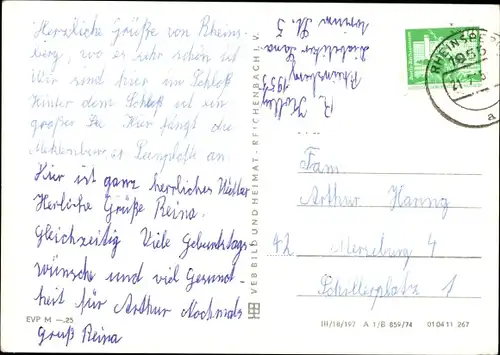 Herzliche Grüße von Rheins-
berg, wo es sehr schön ist
Wir sind hier am Schloß
Hinter dem Schloß ist ein
großer See Hier fängt die
Mecklenburger Seenplatte an.
Hier ist ganz herrliches Wetter
Herliche Grüße Reina.
Gleichzeitig Viele Geburtstags
wünsche und viel Gesund-
heit für Arthur Nochmals
Gruß Reina
EVP M —.25
VEB BILD UND HEIMAT · REICHENBACH I. V.
R.
1955
Rheinsberg
Str. 5
RHEINSBERG
1955
a
Fam
Arthur Hannig
42 Merseburg 4
Schillerplatz 1
III/18/197 A 1/B 859/74 01 04 11 267